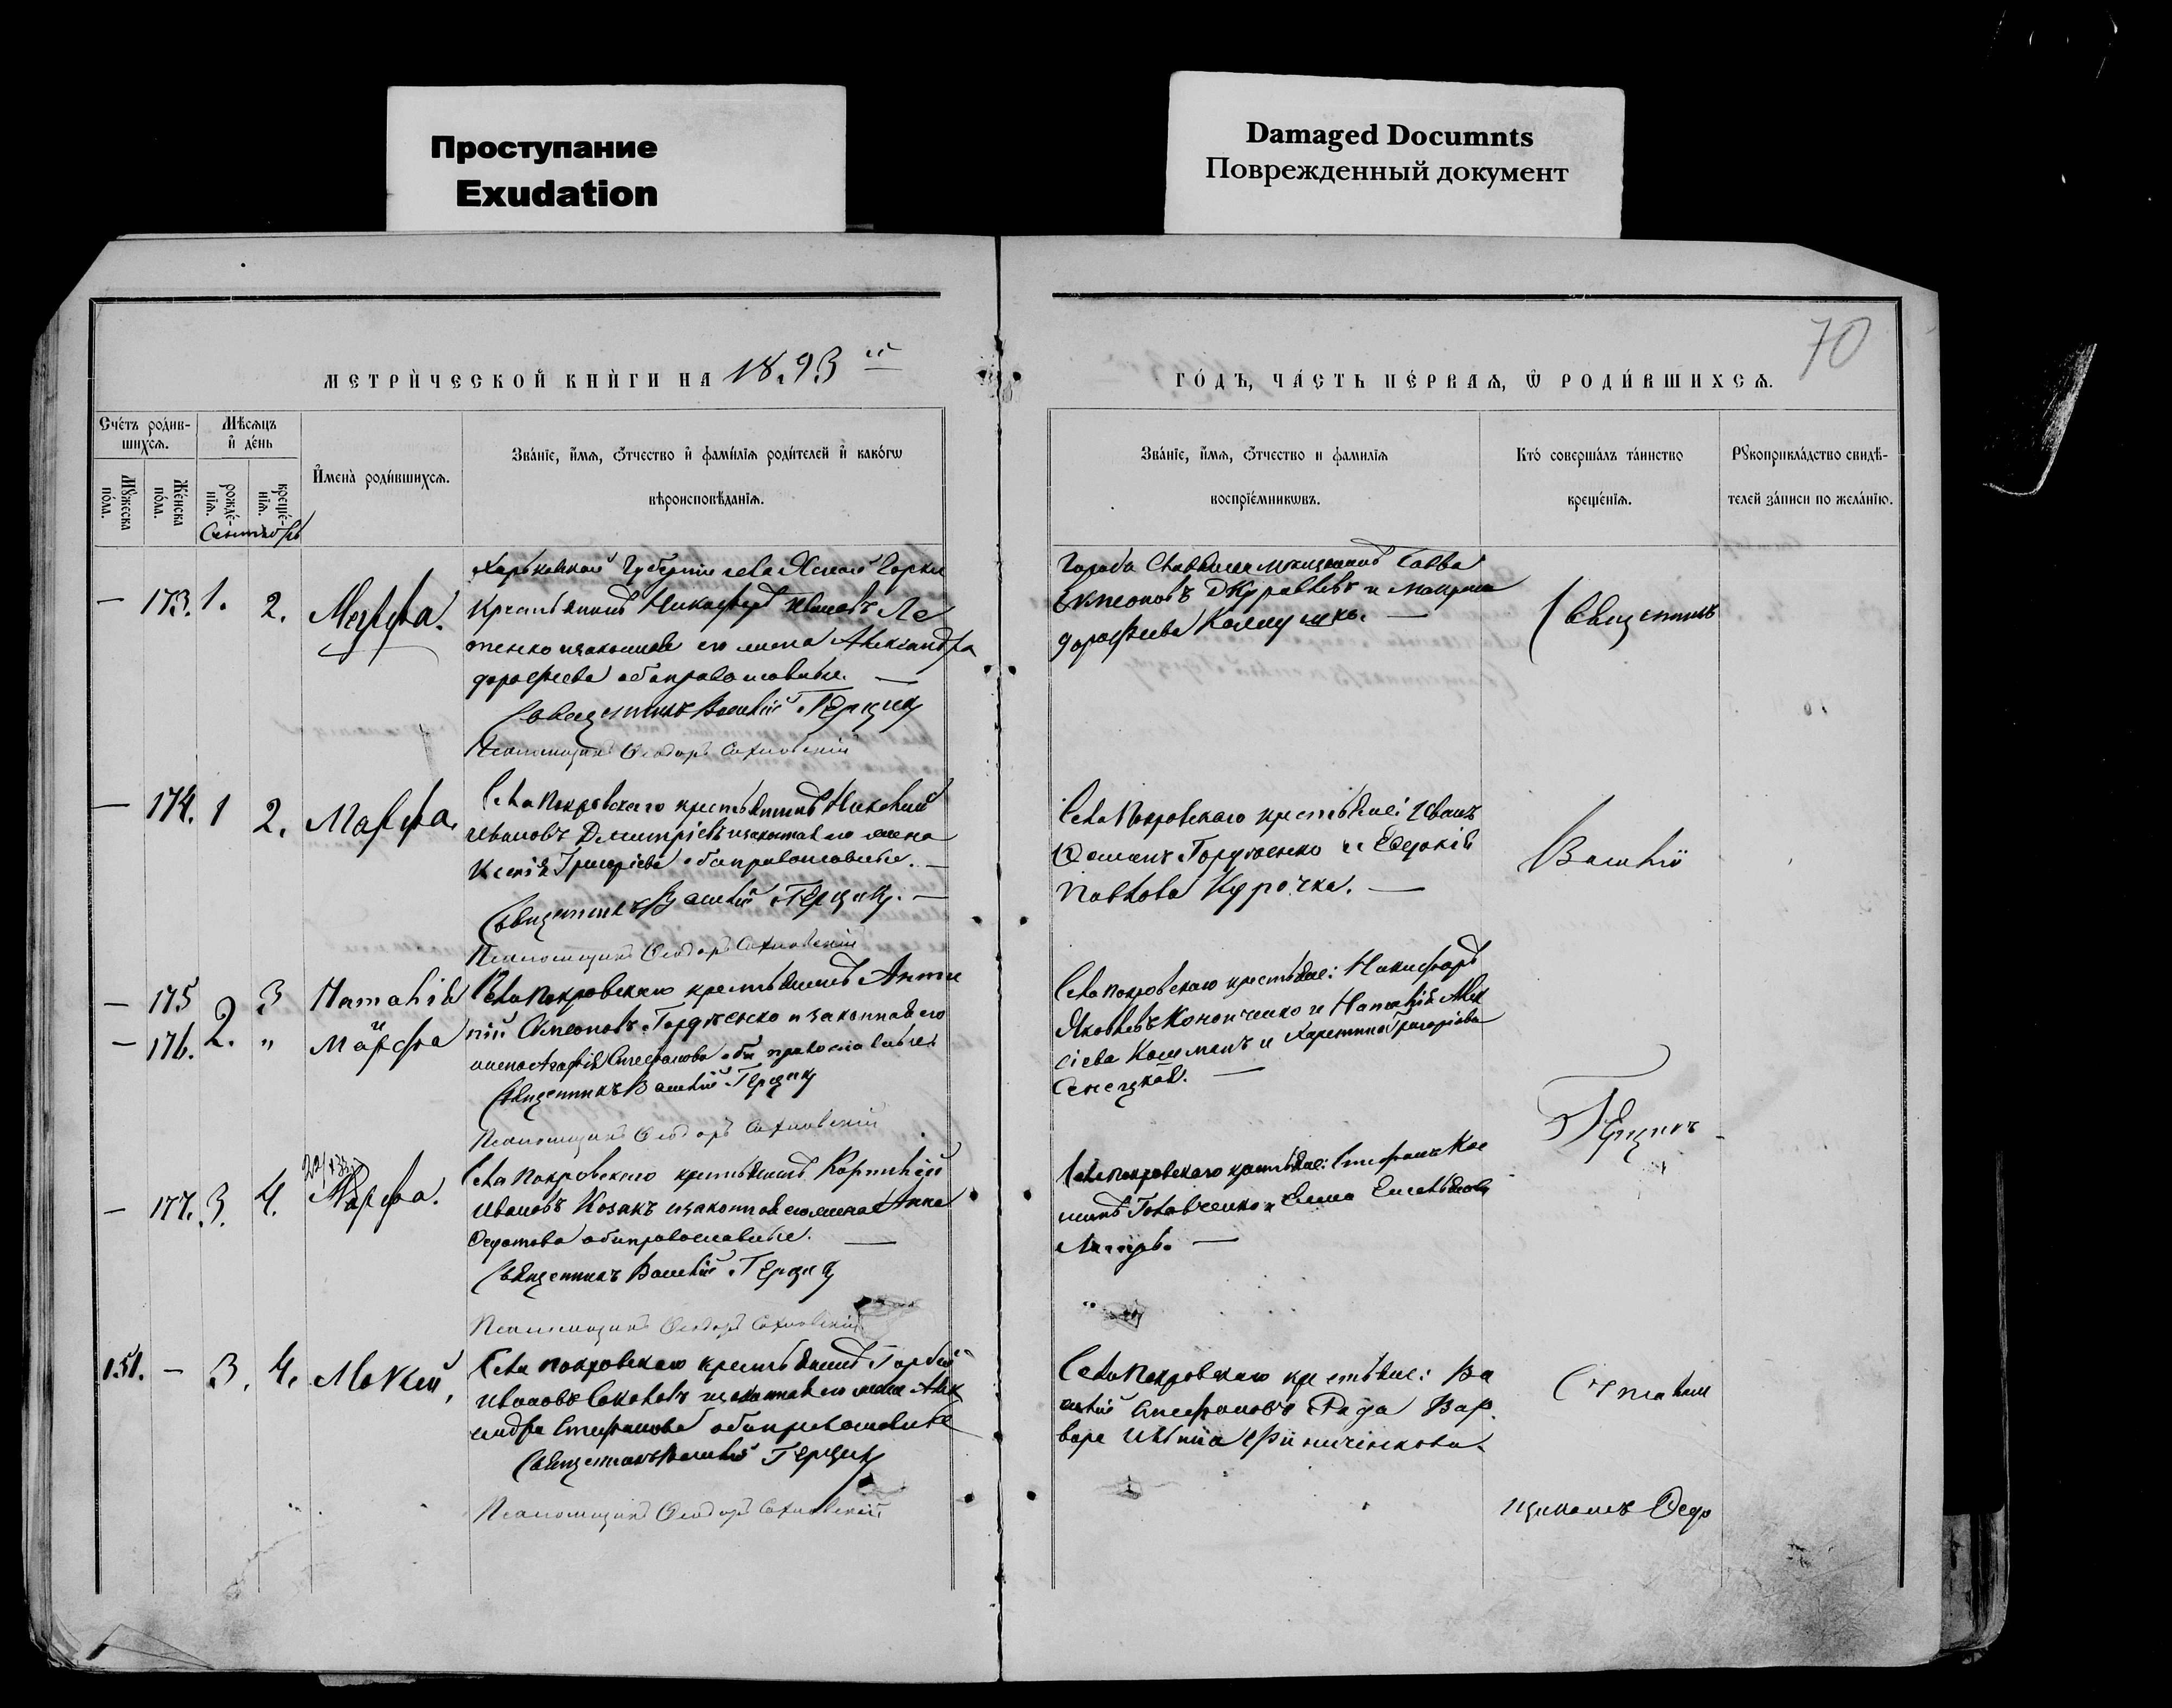 Проступание
Exudation
Damaged Documnts
Поврежденный документ
70
МЕТРИ́ЧЕСКОЙ КНИ́ГИ НА 1893 й
ГО́ДЪ, ЧА́СТЬ ПЕ́РВАѦ, Ѿ РОДИ́ВШИХСѦ.
Сче́тъ роди́в-
шихсѧ.
Мѣсѧцъ
и де́нь
Имена̀ роди́вшихсѧ.
Зва́нїе, и́мѧ, ѻ́тчество и фами́лїѧ роди́телей и како́гѡ
вѣроисповѣ́данїѧ.
Мꙋ́жеска
по́ла.
Же́нска
по́ла.
рожде́-
нїѧ.
креще́-
нїѧ.
Сентябрь
Зва́нїе, и́мѧ, ѻ́тчество и фами́лїѧ
воспрїе́мникѡвъ.
Кто́ соверша́лъ та́инство
креще́нїѧ.
Рꙋкоприкла́дство свидѣ́-
телей за́писи по жела́нїю.
— 173. 1. 2. Марѳа.
Харьковской Губерніи села Ясной Горки
крестьянинъ Никифоръ Ивановъ Ле
тенко и законная его жена Александра
Дорофеева оба православные. —
Священникъ Василій Герцикъ
Псаломщикъ Ѳеодоръ Сахновскій
Города Савва
и
Дорофеева —
Священникъ
— 174. 1 2. Марѳа.
Села Покровскаго крестьянинъ Николай
Ивановъ Димитріевъ и законная его жена
Ксенія Григоріева оба православные. —
Священникъ Василій Герцикъ. —
Псаломщикъ Ѳеодоръ Сахновскій
Села Покровскаго крестьяне: Иванъ
Гордіенко и Евдокія
Павлова Курочка. —
Василій
— 175 2. 3 Наталія
и
— 176. " Марѳа
Села Покровскаго крестьянинъ Анти
пій Симеоновъ Гордіенко и законная его
жена Агафія Стефанова оба православные
Священникъ Василій Герцикъ
Псаломщикъ Ѳеодоръ Сахновскій
Села Покровскаго крестьяне: Никифоръ
Яковлевъ Кононенко и Наталія Алек
сіева и Харитина Григоріева
—
Герцикъ
— 177. 3. 4. Марѳа.
Села Покровскаго крестьянинъ Корнилій
Ивановъ Козакъ и законная его жена Анна
Федотова оба православные. —
Священникъ Василій Герцикъ
Псаломщикъ Ѳеодоръ Сахновскій
Села Покровскаго крестьяне: Стефанъ Кос
минъ Головченко и Елена Емельянова
—
151. — 3. 4. Мокій,
Села Покровскаго крестьянинъ Гордій
Ивановъ Соколовъ и законная его жена Алек
сандра Стефанова оба православные
Священникъ Василій Герцикъ
Псаломщикъ Ѳеодоръ Сахновскій
Села Покровскаго крестьяне: Ва
силій Стефановъ Рада Вар
вара
Съ псалом
щикомъ Ѳеодо